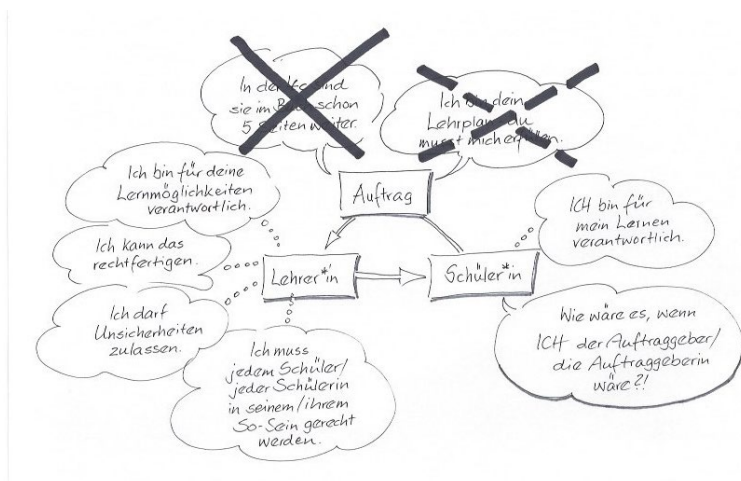 In der
sie im schon
5 Seiten weiter.
Ich bin dein
Lehrplan, du
musst mich erfüllen.
Auftrag
Ich bin für deine
Lernmöglichkeiten
verantwortlich.
Ich kann das
rechtfertigen.
Ich darf
Unsicherheiten
zulassen.
Lehrer*in
Ich muss
jedem Schüler/
jeder Schülerin
in seinem/ihrem
So-Sein gerecht
werden.
Schüler*in
ICH bin für
mein Lernen
verantwortlich.
Wie wäre es, wenn
ICH der Auftraggeber/
die Auftraggeberin
wäre?!